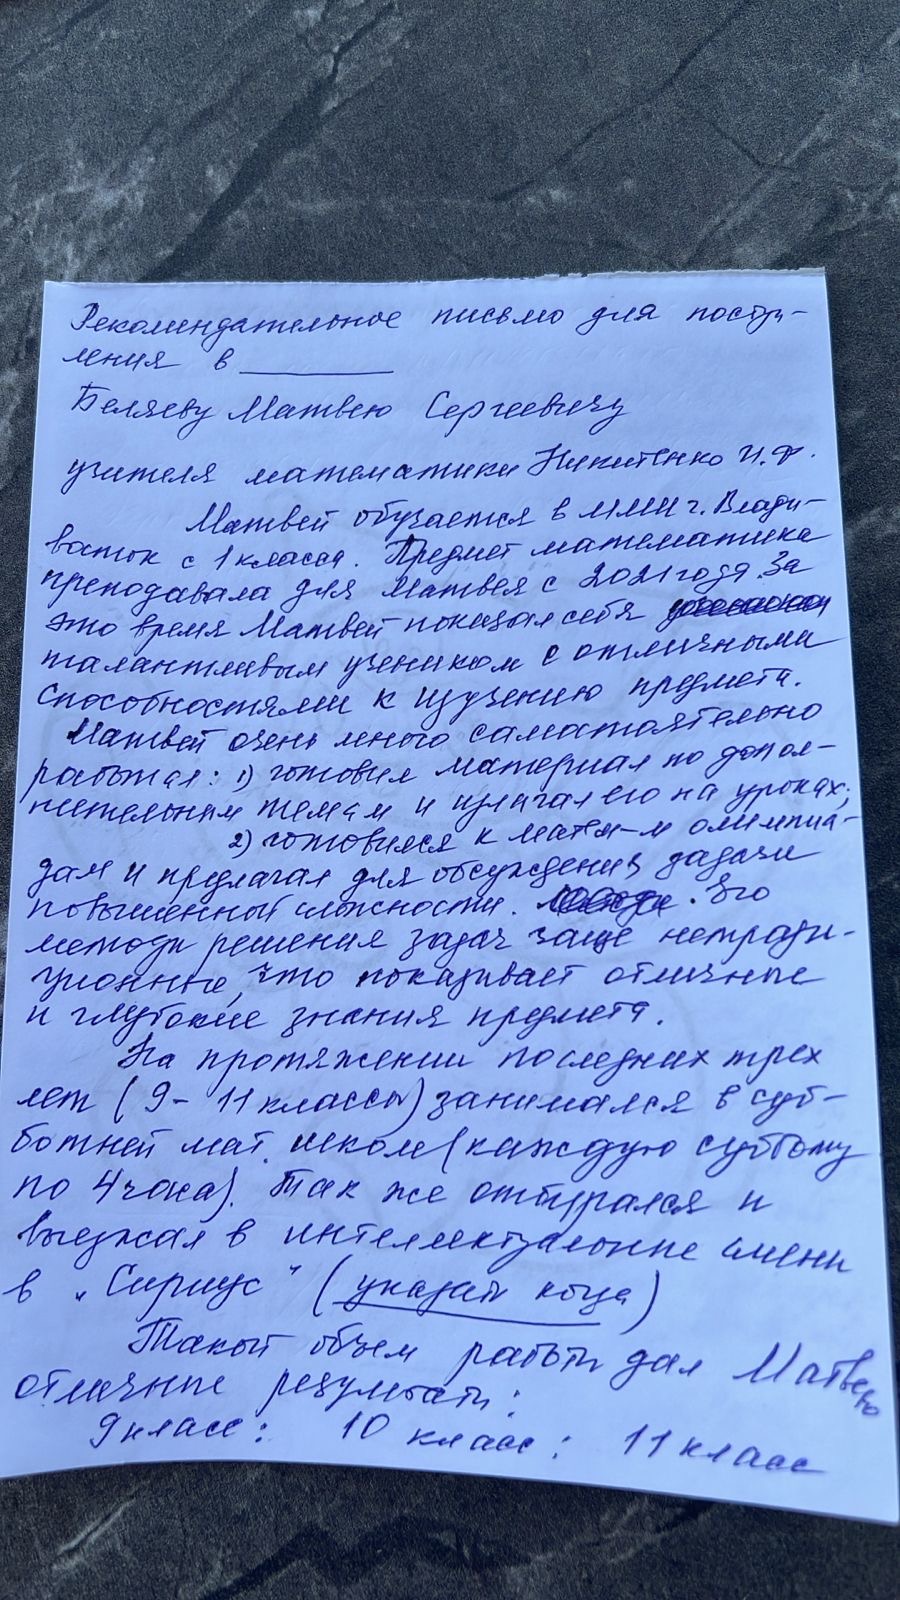 Рекомендательное письмо для поступ-
ления в ________
Беляеву Матвею Сергеевичу
учителя математики Никитенко И.Ф.
Матвей обучается в г. Влади-
восток с 1 класса. Предмет математика
преподавала для Матвея с 2021 года. За
это время Матвей показал себя
талантливым учеником с отличными
способностями к изучению предмета.
Матвей очень много самостоятельно
работал: 1) готовил материал по допол-
нительным темам и излагал его на уроках;
2) готовился к матем-м олимпиа-
дам и предлагал для обсуждения задачи
повышенной сложности. Его
методы решения задач чаще нетради-
ционные, что показывает отличные
и глубокие знания предмета.
На протяжении последних трех
лет (9-11 классы) занимался в суб-
ботней мат. школе (каждую субботу
по 4 часа). Так же отбирался и
выезжал в интеллектуальные смены
в „Сириус" (указать когда)
Такой объем работы дал Матвею
отличные результаты:
9 класс: 10 класс: 11 класс